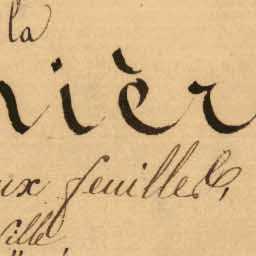 la
nièr
ux feuilles,
ville